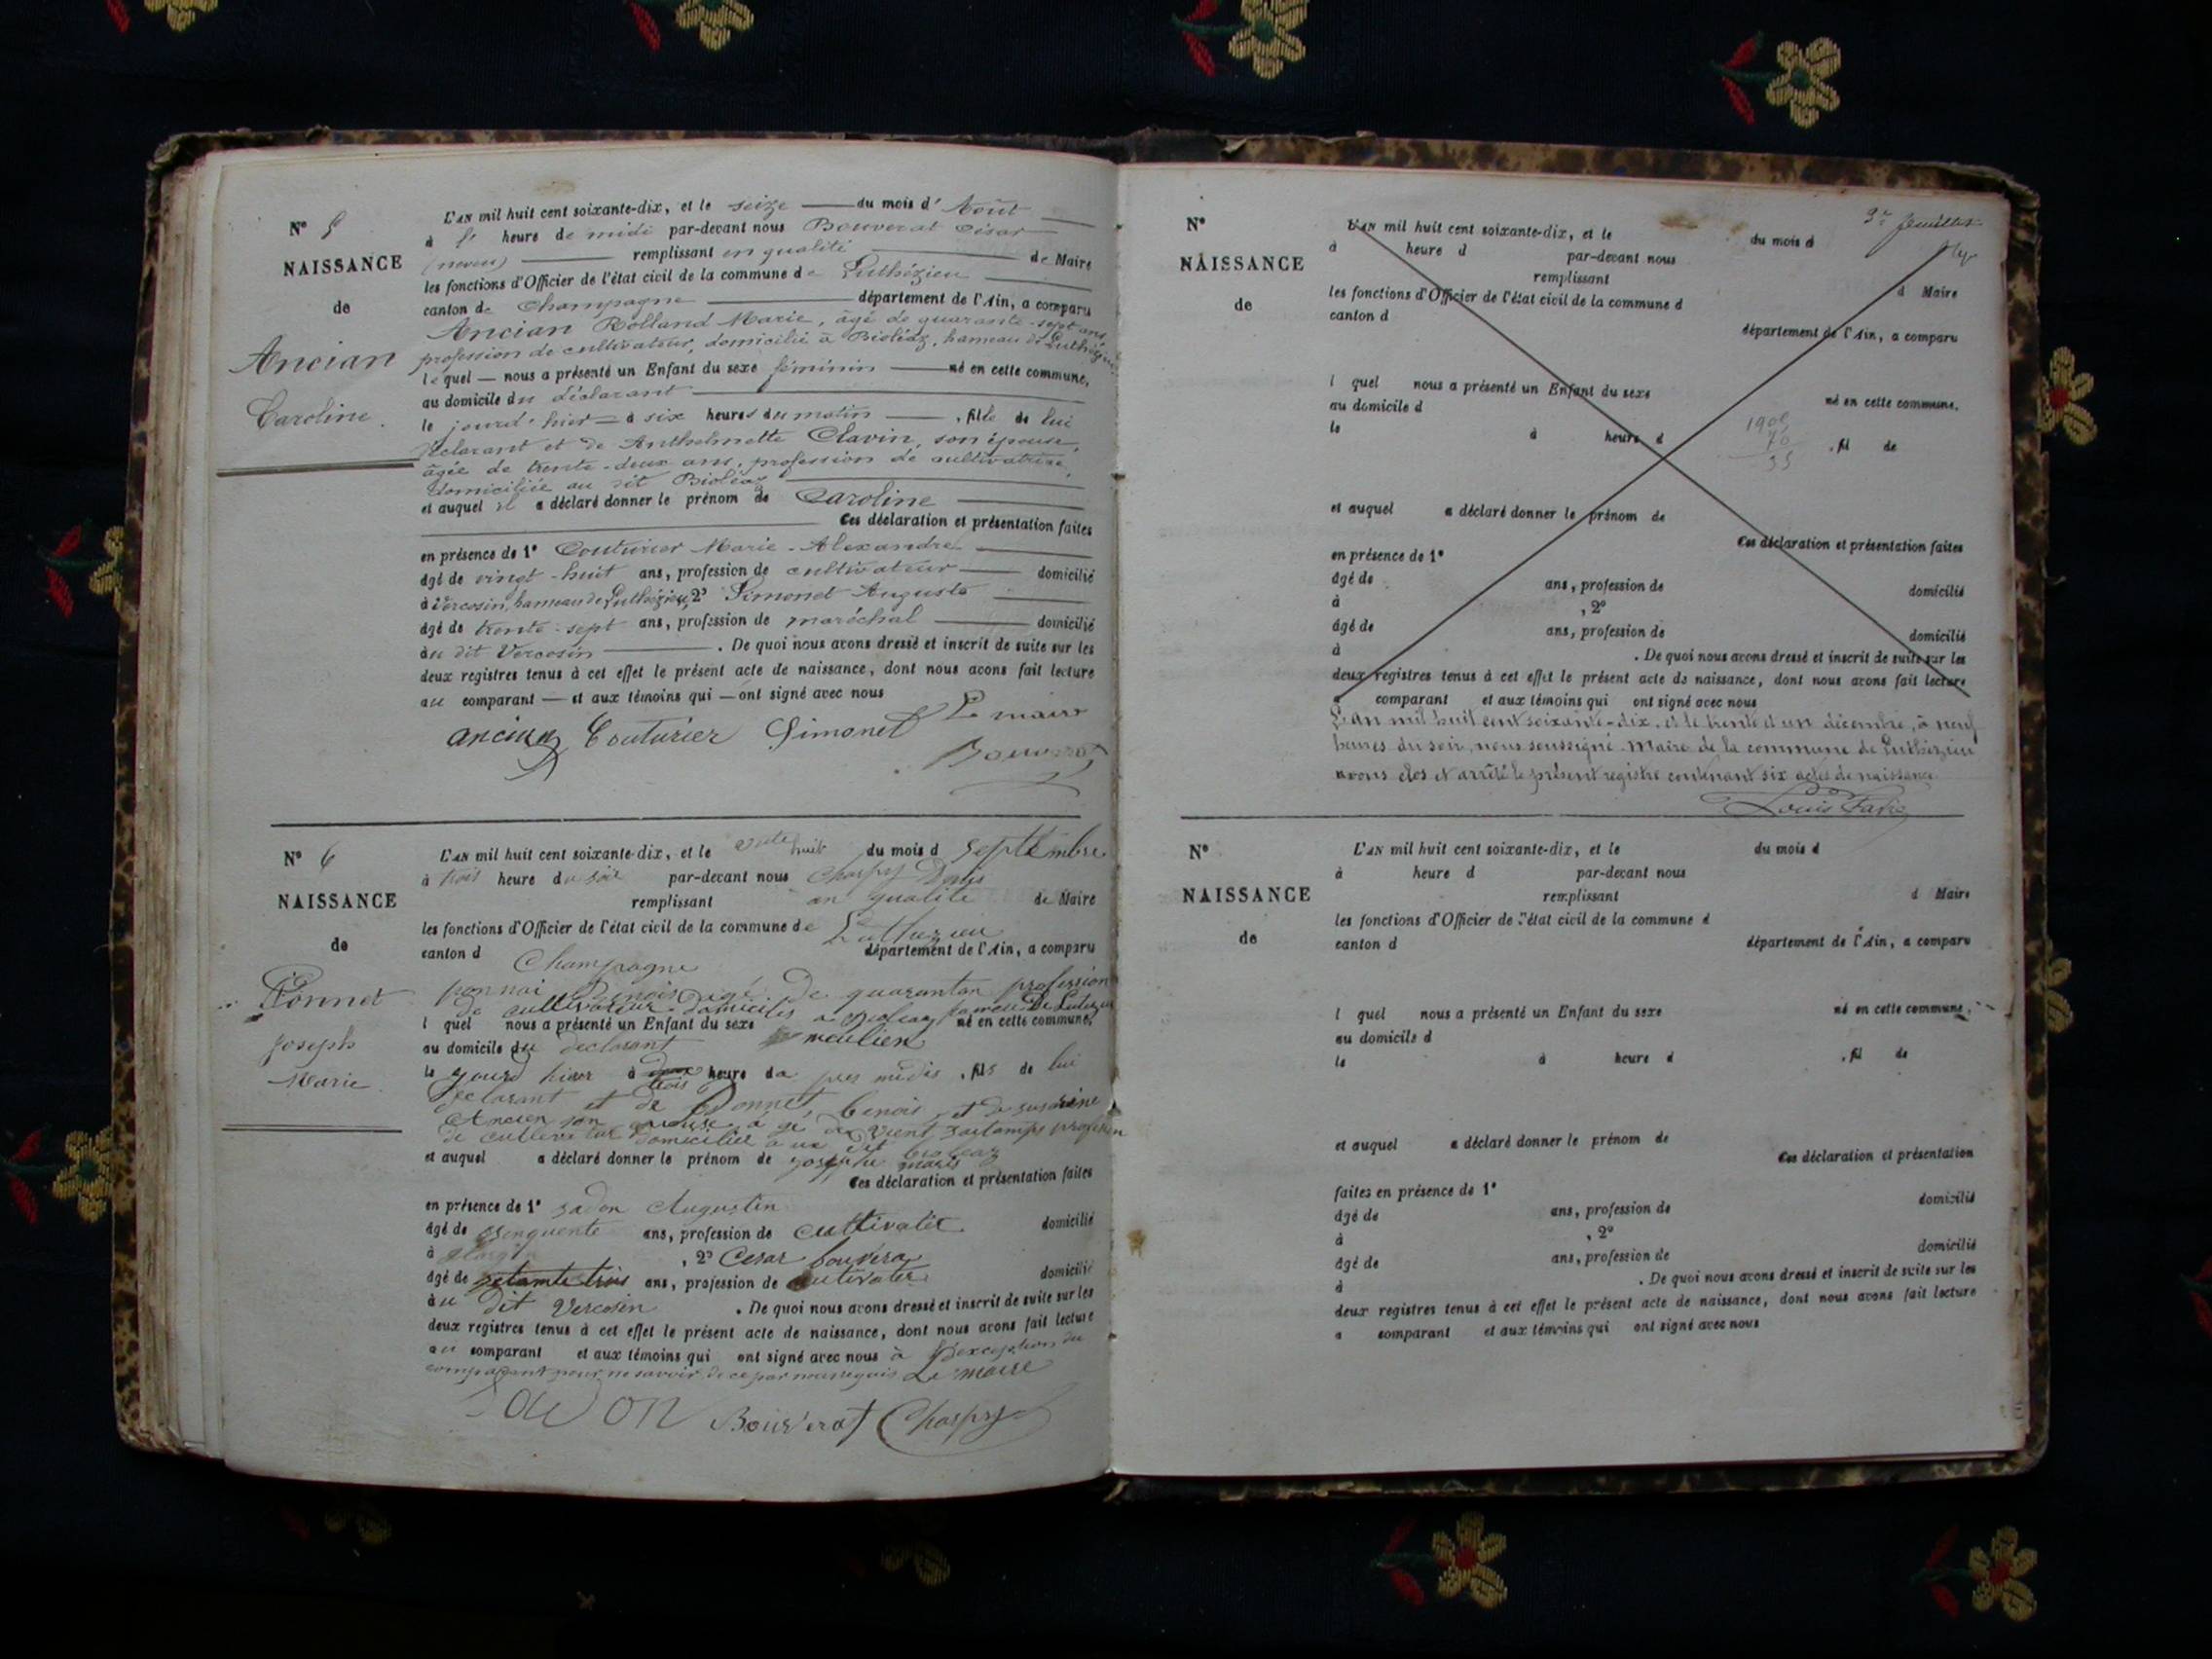 N° 5
NAISSANCE
de
Ancian
Caroline.
L'AN mil huit cent soixante-dix, et le seize du mois d' Août
à heure de midi par-devant nous Bouverat César
(neveu) remplissant en qualité de Maire
les fonctions d'Officier de l'état civil de la commune de Luthézieu
canton de Champagne département de l'Ain, a comparu
Ancian Rolland Marie, âgé de quarante-sept ans,
profession de cultivateur, domicilié à Bioléaz, hameau de Luthézieu
lequel nous a présenté un Enfant du sexe féminin né en cette commune,
au domicile du déclarant
le jourd'hier à six heures du matin, fille de lui
déclarant et de Anthelmette Clavin, son épouse,
âgée de trente-deux ans, profession de cultivatrice,
domiciliée au dit Bioléaz
et auquel il a déclaré donner le prénom de Caroline
Ces déclaration et présentation faites
en présence de 1° Couturier Marie-Alexandre
âgé de vingt-huit ans, profession de cultivateur domicilié
à Vercosin, hameau de Luthézieu, 2° Simonet Auguste
âgé de trente-sept ans, profession de maréchal domicilié
au dit Vercosin. De quoi nous avons dressé et inscrit de suite sur les
deux registres tenus à cet effet le présent acte de naissance, dont nous avons fait lecture
au comparant et aux témoins qui ont signé avec nous
Le maire
ancian Couturier Simonet
Bouverat
N° 6
NAISSANCE
de
Ponnet
Joseph
Marie
L'AN mil huit cent soixante-dix, et le huit du mois d septembre
à trois heure du soir par-devant nous Charpy Denis
remplissant en qualité de Maire
les fonctions d'Officier de l'état civil de la commune de Luthezieu
canton d Champagne département de l'Ain, a comparu
Benois agé de quarantan profession
de cultivateur domicilié a Bioleaz hameau De
l quel nous a présenté un Enfant du sexe né en cette commune,
au domicile du declarant
le jourd hier à trois heure da pres midis, fils de lui
declarant et de Ponnet benois et de
Ancien son epouse profesion
de domicilier a un dit bioleaz
et auquel a déclaré donner le prénom de josephe maris
Ces déclaration et présentation faites
en présence de 1° sadon Augustin
âgé de cinquente ans, profession de cultivater domicilié
à, 2° Cesar bouvera
âgé de setante trois ans, profession de cultivater domicilié
au dit Vercosin. De quoi nous avons dressé et inscrit de suite sur les
deux registres tenus à cet effet le présent acte de naissance, dont nous avons fait lecture
au comparant et aux témoins qui ont signé avec nous à l'exception du
comparant pour ne savoir de ce par nous requis Le maire
Sadon Bouverat Charpy
3e feuillet
N°
NAISSANCE
de
L'AN mil huit cent soixante-dix, et le du mois d
à heure d par-devant nous
remplissant d Maire
les fonctions d'Officier de l'état civil de la commune d
canton d département de l'Ain, a comparu
l quel nous a présenté un Enfant du sexe né en cette commune,
au domicile d
le à heure d, fil de
1905
70
35
et auquel a déclaré donner le prénom de
Ces déclaration et présentation faites
en présence de 1°
âgé de ans, profession de domicilié
à, 2°
âgé de ans, profession de domicilié
à. De quoi nous avons dressé et inscrit de suite sur les
deux registres tenus à cet effet le présent acte de naissance, dont nous avons fait lecture
a comparant et aux témoins qui ont signé avec nous
L'an mil huit cent soixante-dix, et le trente et un décembre, à neuf
heures du soir, nous soussigné Maire de la commune de Luthézieu
avons clos et arrêté le présent registre contenant six actes de naissance.
Louis
N°
NAISSANCE
de
L'AN mil huit cent soixante-dix, et le du mois d
à heure d par-devant nous
remplissant d Maire
les fonctions d'Officier de l'état civil de la commune d
canton d département de l'Ain, a comparu
l quel nous a présenté un Enfant du sexe né en cette commune,
au domicile d
le à heure d, fil de
et auquel a déclaré donner le prénom de
Ces déclaration et présentation
faites en présence de 1°
âgé de ans, profession de domicilié
à, 2°
âgé de ans, profession de domicilié
à. De quoi nous avons dressé et inscrit de suite sur les
deux registres tenus à cet effet le présent acte de naissance, dont nous avons fait lecture
a comparant et aux témoins qui ont signé avec nous